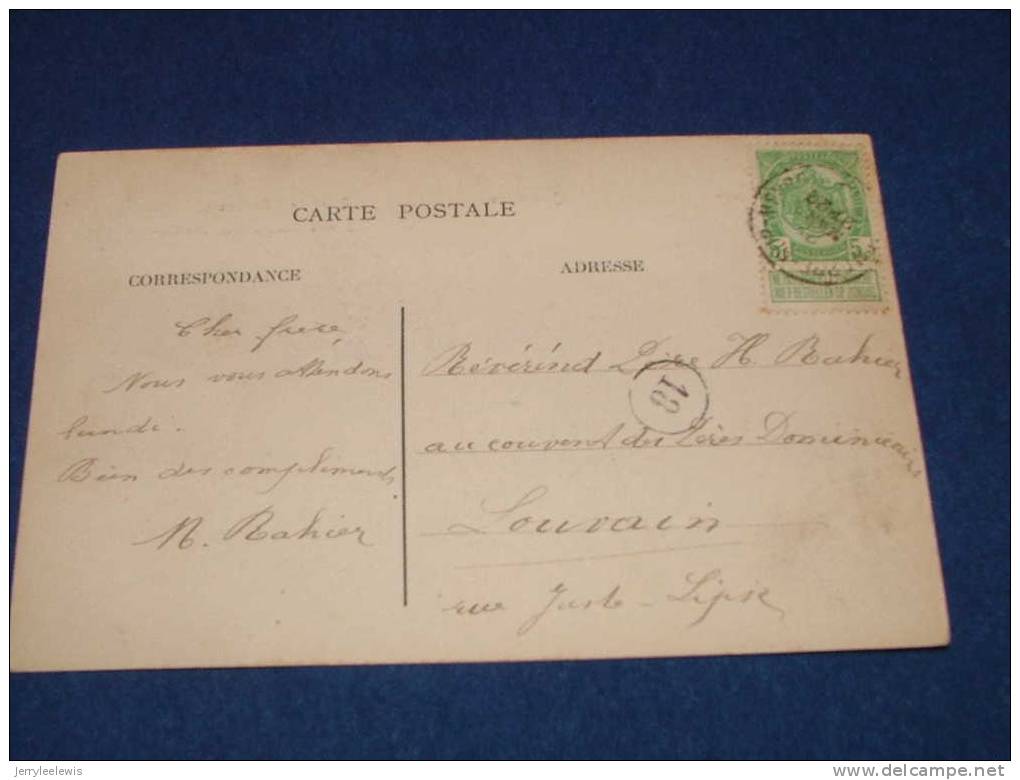 CARTE POSTALE
CORRESPONDANCE
ADRESSE
Cher frère,
Nous vous attendons
lundi.
Bien des compliments
M. Rahier
Révérend Père H. Rahier
au couvent des Pères Dominicains
Louvain
rue Juste-Lipse
18
5 5
jerryleelewis
delcampe.net